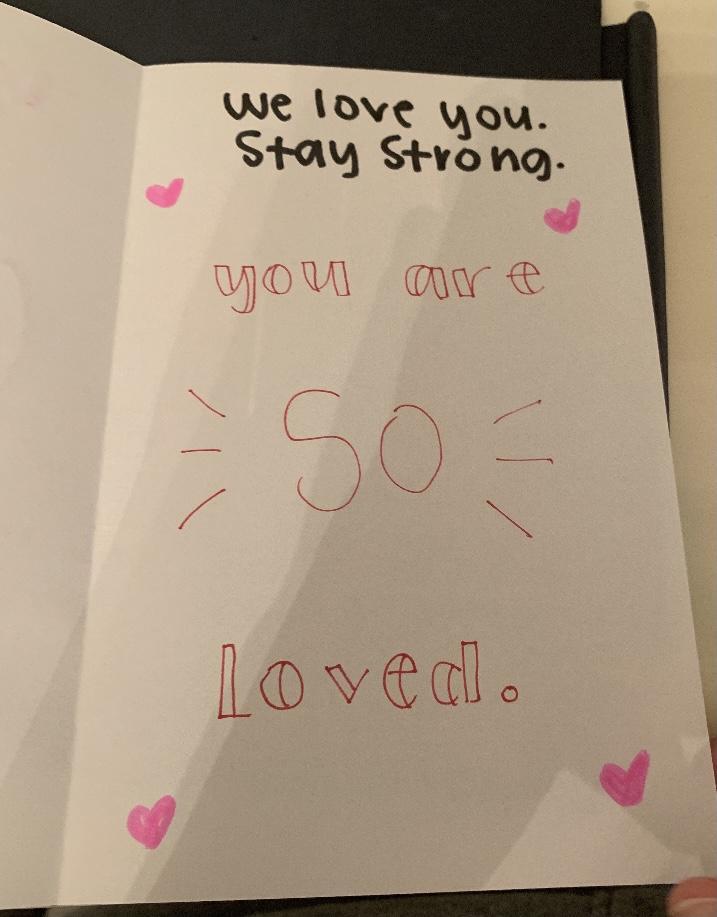 we love you.
Stay Strong.
you are
SO
loved.